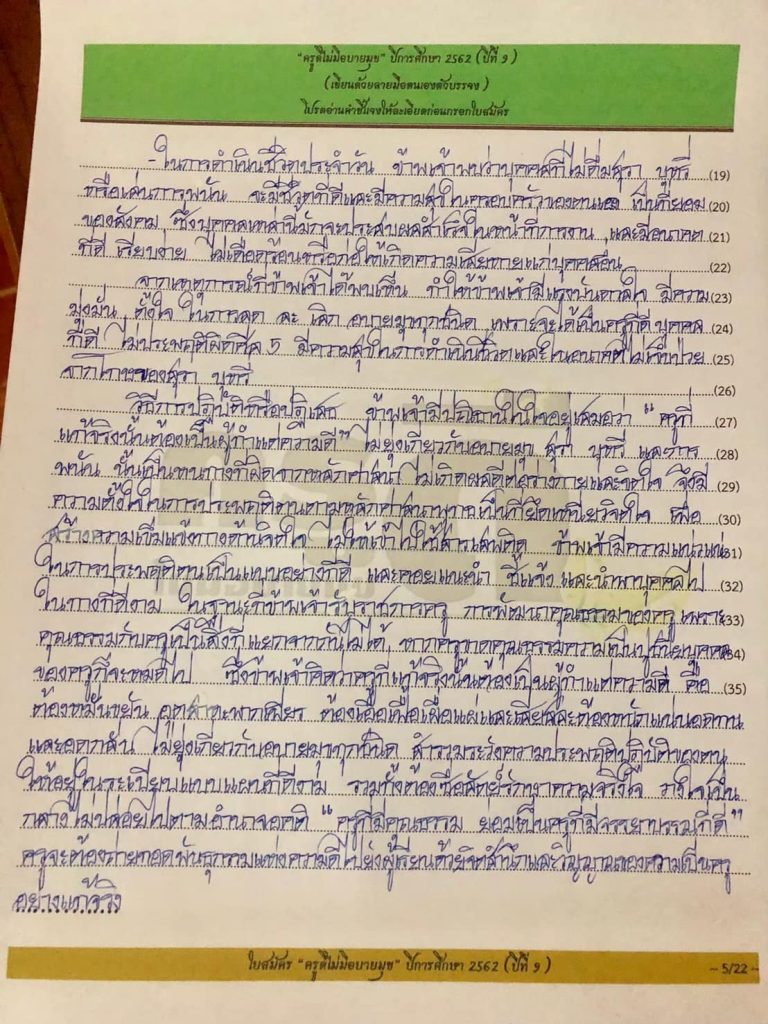 "ครูดีไม่มีอบายมุข" ปีการศึกษา 2562 (ปีที่ 9)
(เขียนด้วยลายมือตนเองตัวบรรจง)
โปรดอ่านคำชี้แจงให้ละเอียดก่อนกรอกใบสมัคร
- ในการดำเนินชีวิตประจำวัน ข้าพเจ้าพบว่าบุคคลที่ไม่ดื่มสุรา บุหรี่ (19)
หรือเล่นการพนัน จะมีชีวิตที่ดีและมีความสุขในครอบครัวของตนเอง เป็นที่ยอม (20)
ของสังคม ซึ่งบุคคลเหล่านี้มักจะประสบผลสำเร็จในหน้าที่การงาน และมีอนาคต (21)
ที่ดี เรียบง่าย ไม่เดือดร้อนหรือก่อให้เกิดความเสียหายแก่บุคคลอื่น (22)
จากเหตุการณ์ที่ข้าพเจ้าได้พบเห็น ทำให้ข้าพเจ้ามีแรงบันดาลใจ มีความ (23)
มุ่งมั่น ตั้งใจ ในการลด ละ เลิก อบายมุขทุกชนิด เพราะจะได้เป็นครูที่ดี บุคคล (24)
ที่ดี ไม่ประพฤติผิดศีล 5 มีความสุขในการดำเนินชีวิตและในอนาคตไม่เจ็บป่วย (25)
จากโทษของสุรา บุหรี่ (26)
วิธีการปฏิบัติหรือปฏิเสธ ข้าพเจ้ามีปณิธานในใจอยู่เสมอว่า "ครูที่ (27)
แท้จริงนั้นต้องเป็นผู้ทำแต่ความดี" ไม่ยุ่งเกี่ยวกับอบายมุข สุรา บุหรี่ และการ (28)
พนัน นั้นเป็นหนทางที่ผิดจากหลักศาสนา ไม่เกิดผลดีต่อร่างกายและจิตใจ จึงมี (29)
ความตั้งใจในการประพฤติตนตามหลักศาสนาพุทธเป็นที่ยึดเหนี่ยวจิตใจ เพื่อ (30)
สร้างความเข้มแข็งทางด้านจิตใจ ไม่ให้เข้าไปใช้สารเสพติด ข้าพเจ้ามีความแน่วแน่ (31)
ในการประพฤติตนเป็นแบบอย่างที่ดี และคอยแนะนำ ชี้แจ้ง และนำพาบุคคลไป (32)
ในทางที่ดีงาม ในฐานะที่ข้าพเจ้ารับราชการครู การพัฒนาคุณธรรมของครู เพราะ (33)
คุณธรรมกับครูเป็นสิ่งที่แยกจากกันไม่ได้ หากครูขาดคุณธรรมความเป็นปูชนียบุคคล (34)
ของครูก็จะหมดไป ซึ่งข้าพเจ้าคิดว่าครูที่แท้จริงนั้นต้องเป็นผู้ทำแต่ความดี คือ (35)
ต้องหมั่นขยัน อุตสาหะพากเพียร ต้องเอื้อเฟื้อเผื่อแผ่และเสียสละต้องหนักแน่นอดทน
และอดกลั้น ไม่ยุ่งเกี่ยวกับอบายมุขทุกชนิด สำรวมระวังความประพฤติปฏิบัติของตน
ให้อยู่ในระเบียบแบบแผนที่ดีงาม รวมทั้งต้องซื่อสัตย์รักษาความจริงใจ วางใจเป็น
กลางไม่ปล่อยไปตามอำนาจอคติ "ครูที่มีคุณธรรม ย่อมเป็นครูที่มีจรรยาบรรณที่ดี"
ครูจะต้องถ่ายทอดพันธุกรรมแห่งความดีไปยังผู้เรียนด้วยจิตสำนึกและวิญญาณของความเป็นครู
อย่างแท้จริง
ใบสมัคร "ครูดีไม่มีอบายมุข" ปีการศึกษา 2562 (ปีที่ 9)
- 5/22 -